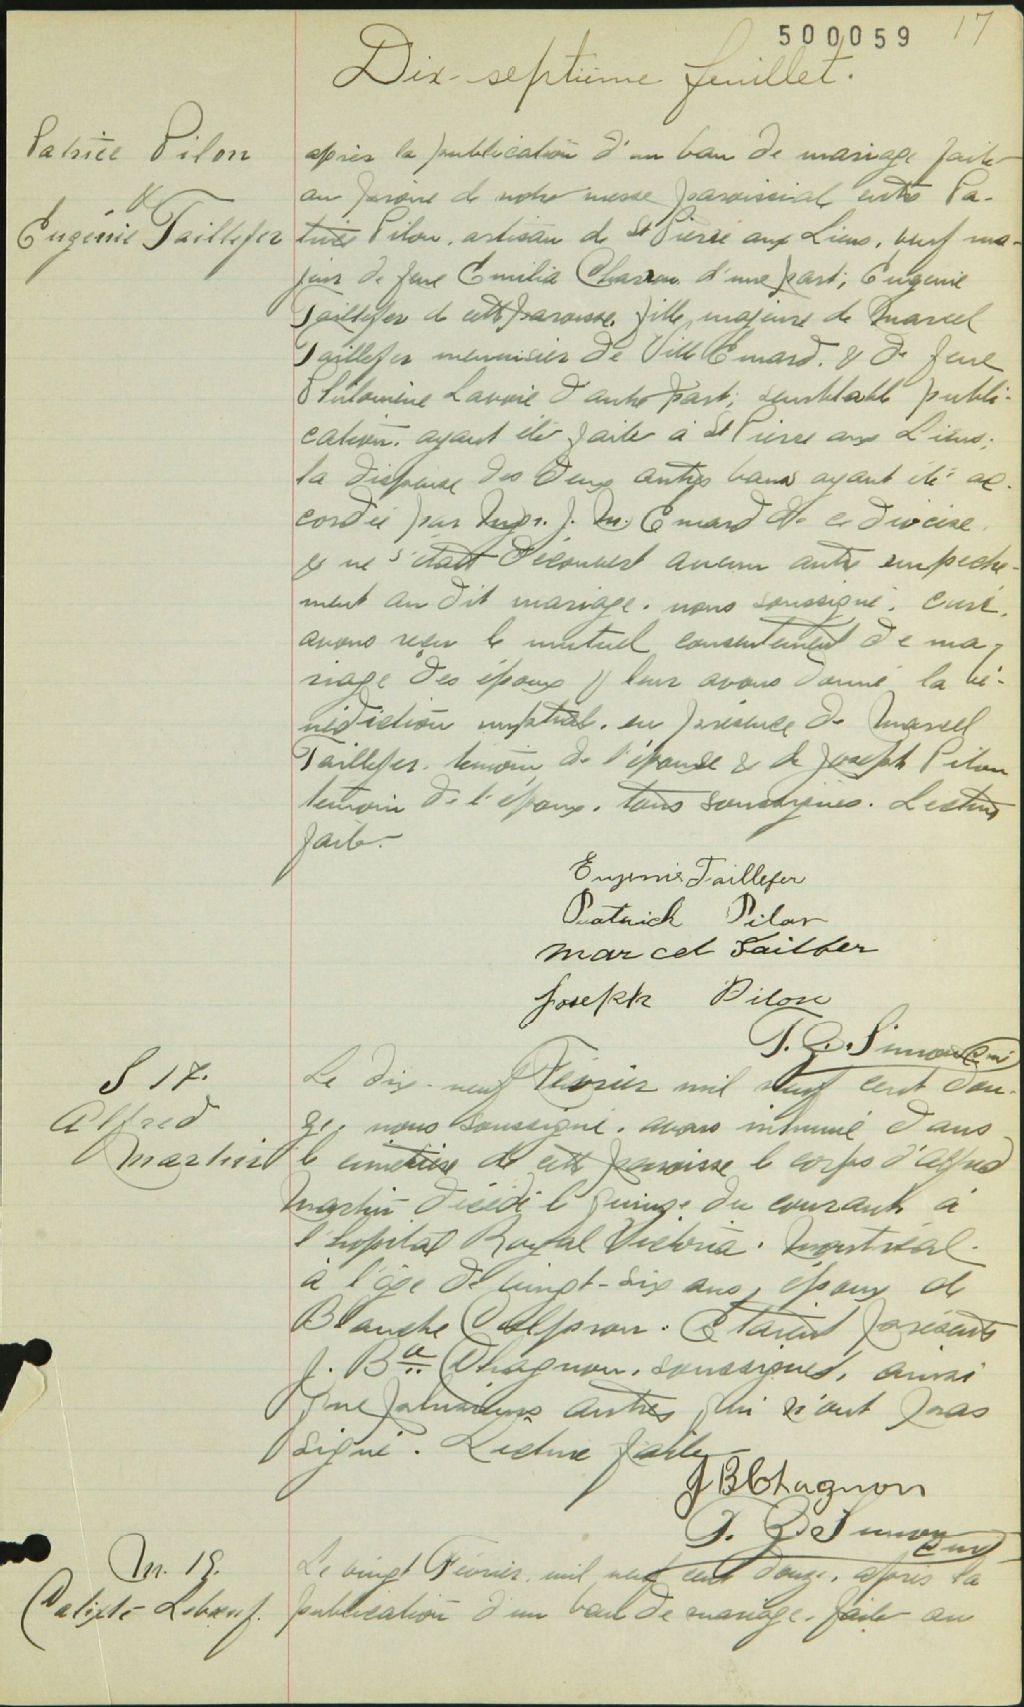 500059 17
Dix-septième feuillet.
Patrice Pilon
&
Eugénie Taillefer
après la publication d'un ban de mariage faite
au prône de notre messe paroissiale entre Pa-
trice Pilon, artisan de St Pierre aux Liens, veuf ma-
jeur de feue Emilia Charron d'une part; Eugénie
Taillefer de cette paroisse, fille majeure de Marcel
Taillefer menuisier de Ville Emard, & de feue
Philomène Lavoie d'autre part; semblable publi-
cation ayant été faite à St Pierre aux Liens;
la dispense des deux autres bans ayant été ac-
cordée par Mgr. J. M. Emard de ce diocèse,
& ne s'étant découvert aucun autre empêche-
ment au dit mariage, nous soussigné, curé,
avons reçu le mutuel consentement de ma-
riage des époux & leur avons donné la bé-
nédiction nuptiale, en présence de Marcel
Taillefer, témoin de l'épouse & de Joseph Pilon
témoin de l'époux, tous soussignés. Lecture
faite.
Eugenie Taillefer
Patrick Pilon
Marcel Tailfer
Joseph Pilon
Simon
S 17.
Alfred
Martin
Le dix-neuf Février mil neuf cent dou-
ze, nous soussigné, avons inhumé dans
le cimetière de cette paroisse le corps d'Alfred
Martin décédé le quinze du courant à
l'hopital Royal Victoria, Montréal,
à l'âge de vingt-six ans, époux de
Blanche. Etaient présents
J. Bte Chagnon, soussigné, ainsi
que plusieurs autres qui n'ont pas
signé. Lecture faite
J B Chagnon
Simon curé
M. 18.
Calixte Leboeuf.
Le vingt Février, mil neuf cent douze, après la
publication d'un ban de mariage faite au